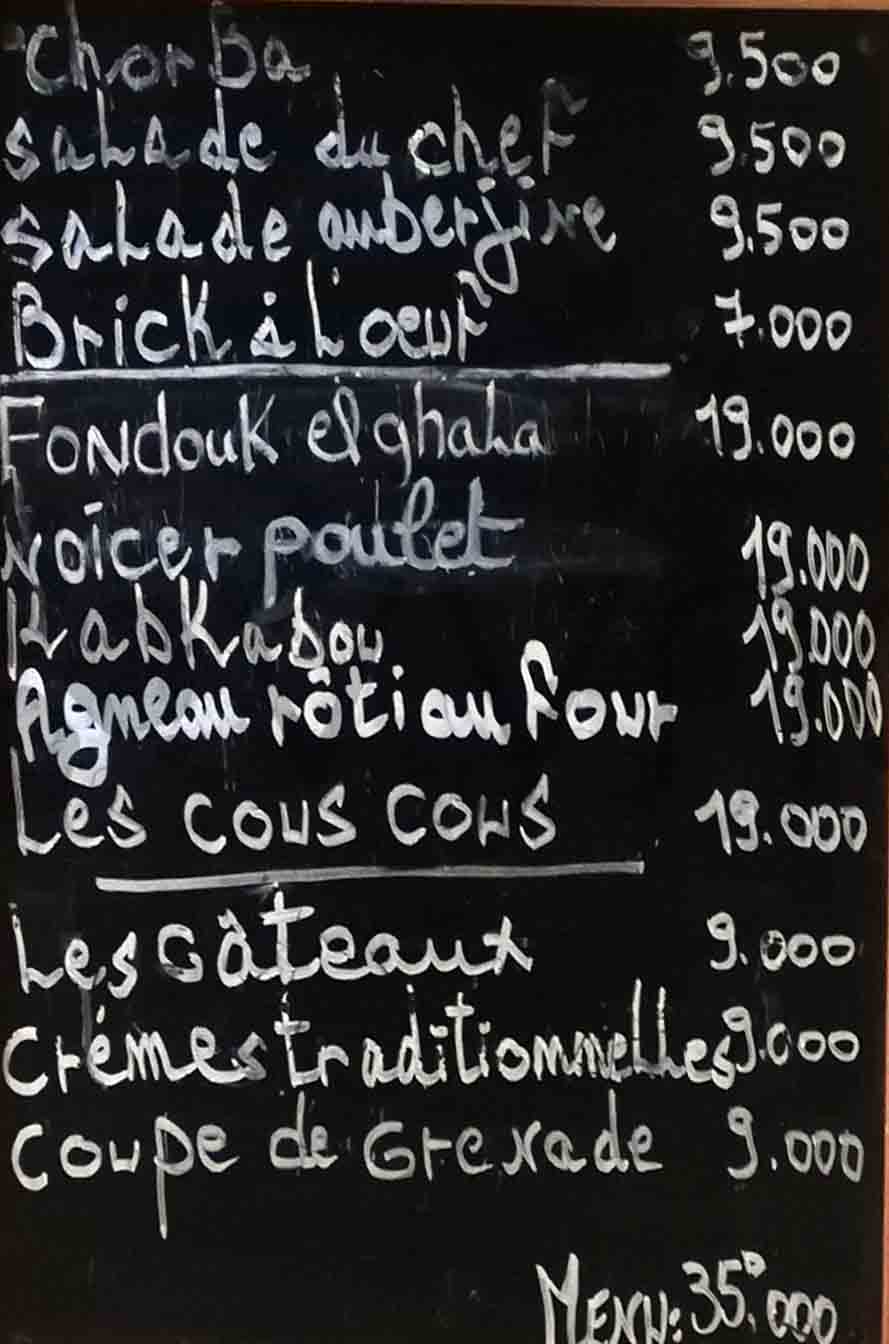 Chorba 9.500
salade du chef 9.500
salade auberjine 9.500
Brick à L'oeuf 7.000
Fondouk el ghalla 19.000
Noîcer poulet 19.000
Kabkabou 19.000
Agneau rôti au four 19.000
Les cous cous 19.000
Les câteaux 9.000
Crémes traditionnelles 9.000
Coupe de Grenade 9.000
MENU: 35.000